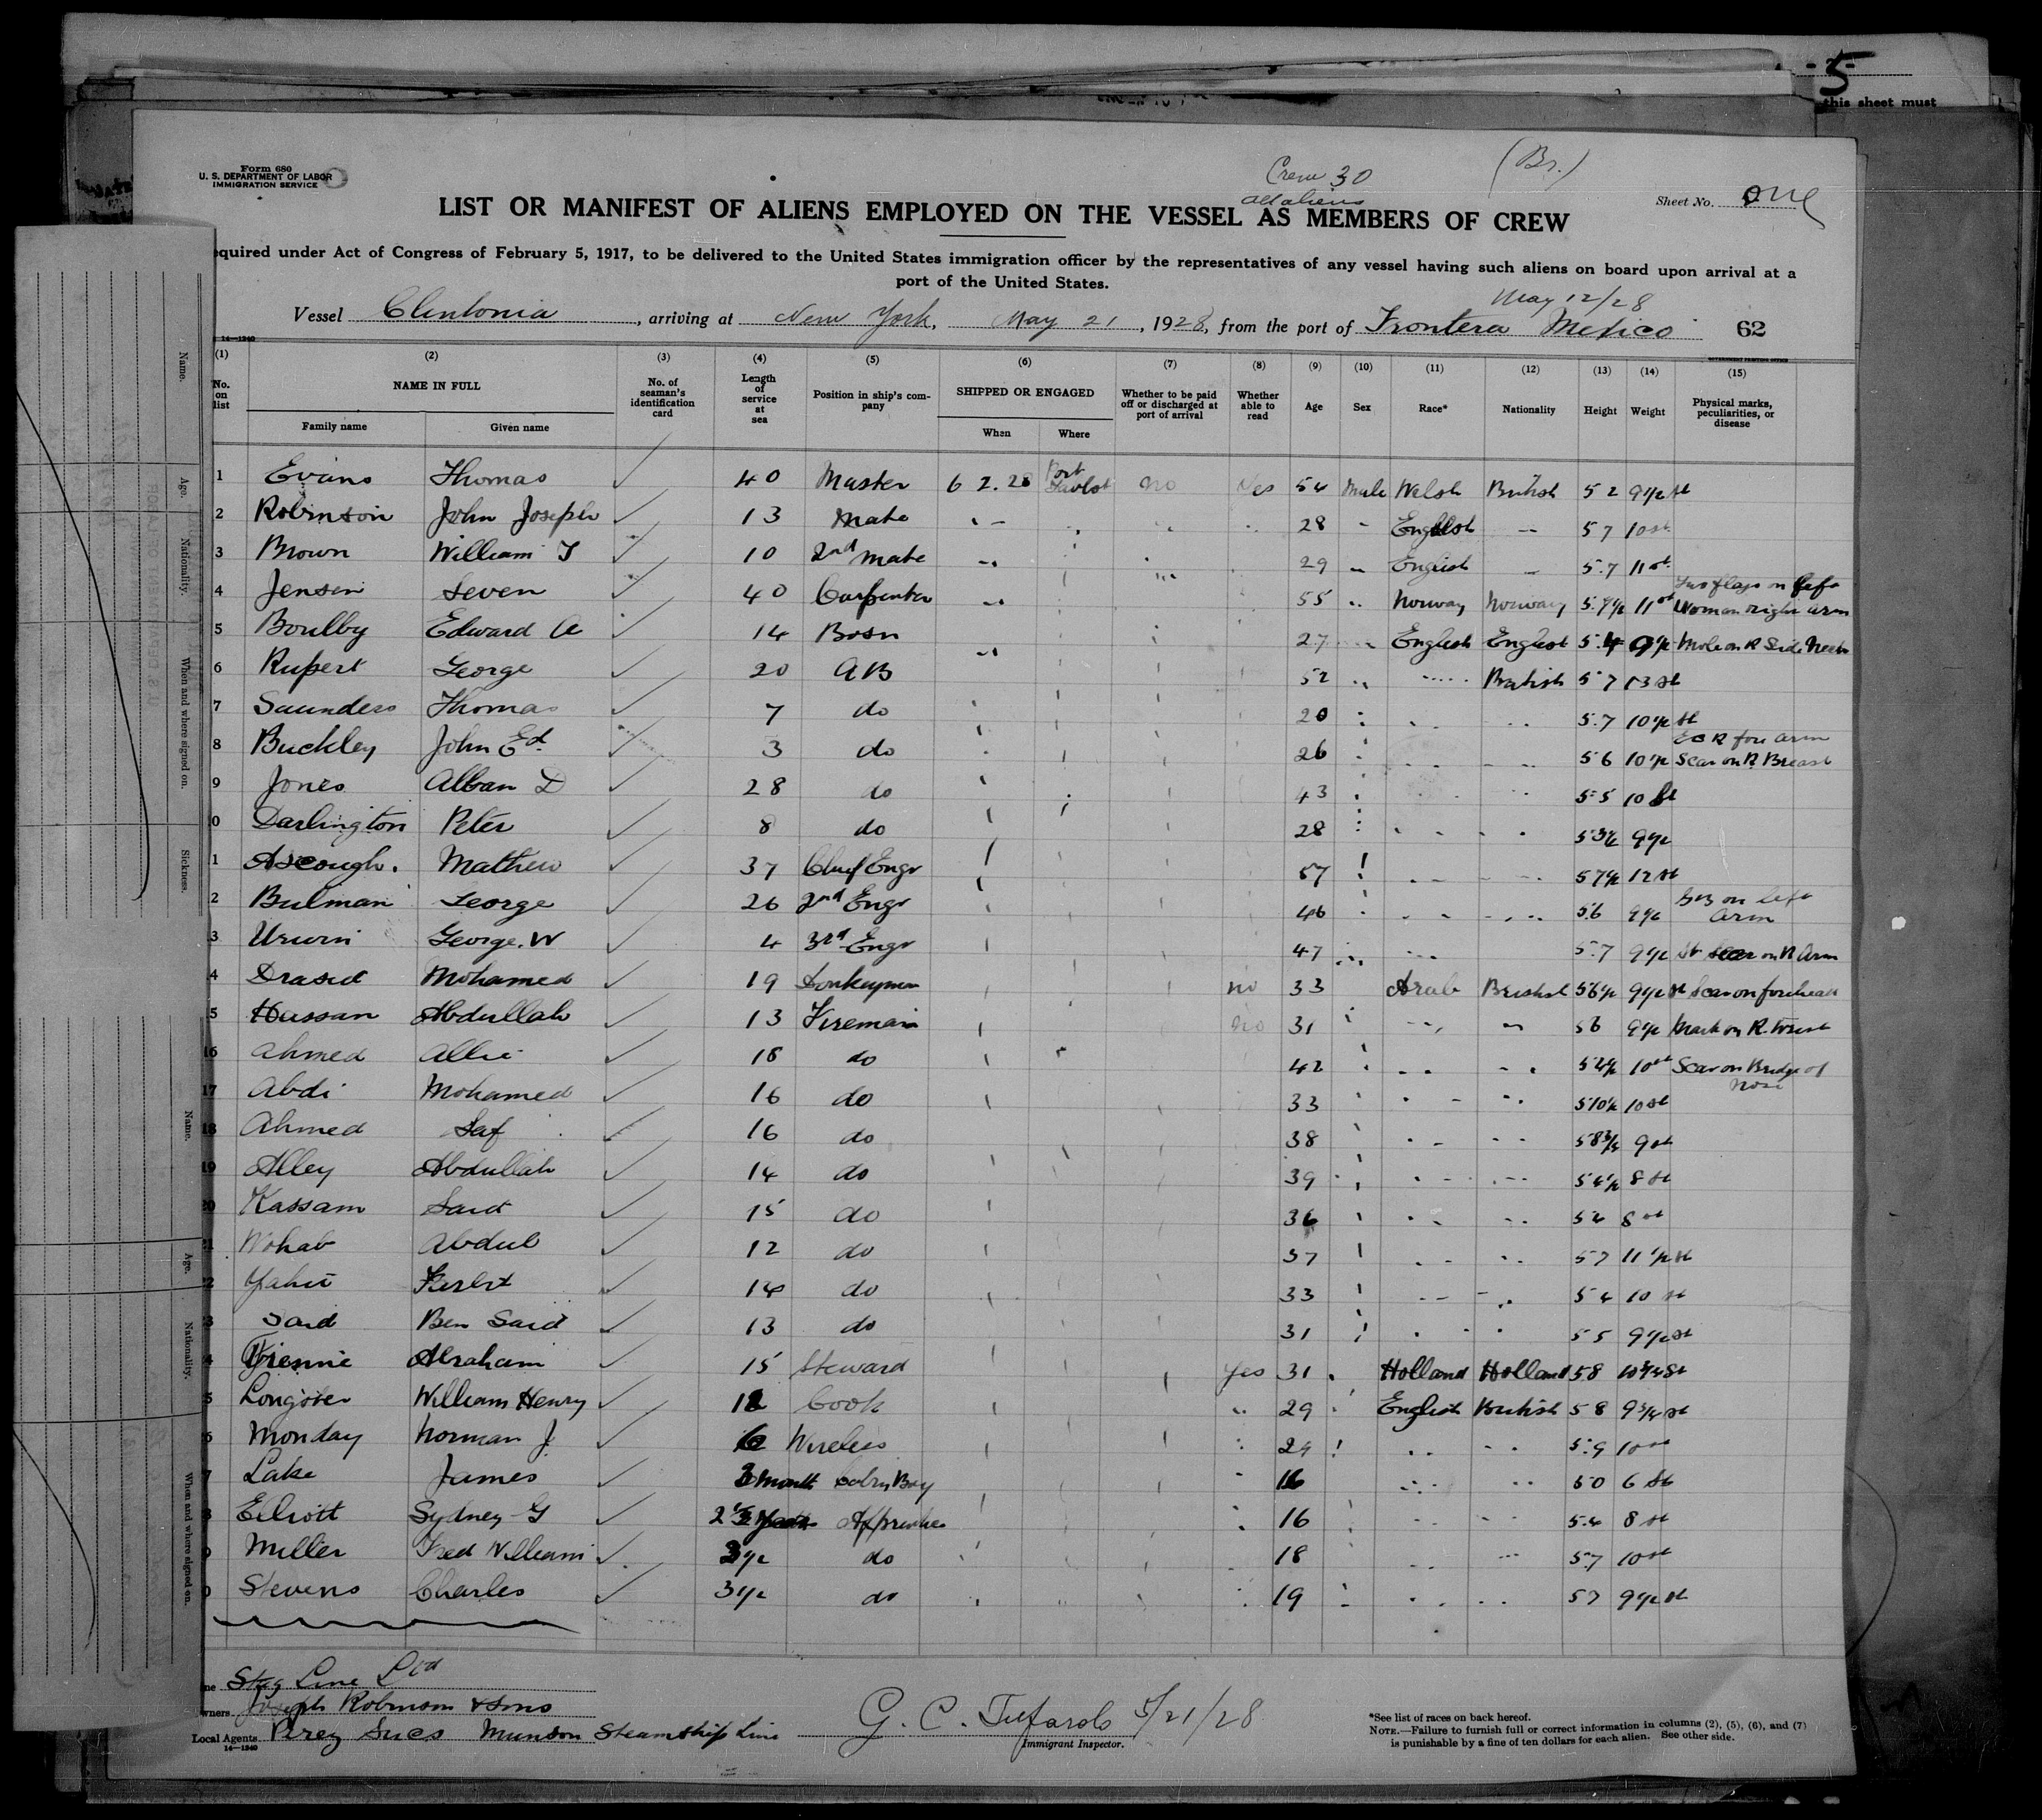 5
this sheet must
Form 680
U. S. DEPARTMENT OF LABOR
IMMIGRATION SERVICE
Crew 30
all aliens
(Br.)
Sheet No. one
LIST OR MANIFEST OF ALIENS EMPLOYED ON THE VESSEL AS MEMBERS OF CREW
quired under Act of Congress of February 5, 1917, to be delivered to the United States immigration officer by the representatives of any vessel having such aliens on board upon arrival at a
port of the United States.
May 12/28
Vessel Clintonia, arriving at New York, May 21, 1928, from the port of Frontera Mexico 62
14—1240
GOVERNMENT PRINTING OFFICE
(1) (2) (3) (4) (5) (6) (7) (8) (9) (10) (11) (12) (13) (14) (15)
No. on list NAME IN FULL No. of seaman's identification card Length of service at sea Position in ship's company SHIPPED OR ENGAGED Whether to be paid off or discharged at port of arrival Whether able to read Age Sex Race* Nationality Height Weight Physical marks, peculiarities, or disease
Family name Given name When Where
1 Evans Thomas ✓ 40 Master 6 2. 28 Port no Yes 54 Male Welsh British 5 2 9 1/2 st
2 Robinson John Joseph ✓ 13 Mate 28 English 5 7 10 st
3 Brown William J ✓ 10 2nd Mate 29 English 5.7 11 st
4 Jensen Seven ✓ 40 Carpenter 55 Norway Norway 5.9 1/2 11 st Two flags on left Woman right arm
5 Boulby Edward A ✓ 14 Bosn 27 English English 5.4 9 1/2 Mole on R Side Neck
6 Rupert George ✓ 20 AB 52 British 5 7 13 st
7 Saunders Thomas ✓ 7 do 20 5.7 10 1/2 st
8 Buckley John Ed. ✓ 3 do 26 5 6 10 1/2 R fore arm Scar on R Breast
9 Jones Alban D ✓ 28 do 43 5 5 10 st
0 Darlington Peter ✓ 8 do 28 5 3 1/2 9 1/2
1 Ascough. Mathew ✓ 37 Chief Engr 57 5 7 1/2 12 st
2 Bulman George ✓ 26 2nd Engr 46 5.6 9 1/2 on left arm
3 Urwin George. W ✓ 4 3rd Engr 47 5.7 9 1/2 st scar on R Arm
4 Drasid Mohamed ✓ 19 Donkeyman no 33 Arab British 5 6 1/2 9 1/2 st Scar on forehead
5 Hassan Abdullah ✓ 13 Fireman no 31 5 6 9 1/2 Mark on R. Wrist
16 Ahmed Allie ✓ 18 do 42 5 4 1/2 10 st Scar on Bridge of nose
17 Abdi Mohamed ✓ 16 do 33 5 10 1/2 10 st
18 Ahmed Saf ✓ 16 do 38 5 8 3/4 9 st
19 Alley Abdullah ✓ 14 do 39 5 4 1/2 8 st
20 Kassam Said ✓ 15 do 36 5 4 8 st
21 Wohab Abdul ✓ 12 do 37 5 7 11 1/2 st
2 Yahii ✓ 14 do 33 5 4 10 st
3 Said Ben Said ✓ 13 do 31 5 5 9 1/2 st
4 Abraham ✓ 15 Steward Yes 31 Holland Holland 5 8 10 3/4 St
5 Longster William Henry ✓ 12 Cook 29 English British 5 8 9 3/4 st
6 Monday Norman J. ✓ 6 Wireless 24 5.9 10 st
7 Lake James ✓ 3 Month Cabin Boy 16 5 0 6 st
8 Elliott Sydney G ✓ 2 1/2 Years Apprentice 16 5.4 8 st
9 Miller Fred William ✓ 3 1/2 do 18 5.7 10 st
0 Stevens Charles ✓ 3 1/2 do 19 5 7 9 1/2 st
ne Stag Line Ltd
wners Joseph Robinson & Sons
Local Agents Perez Sucs Munson Steamship Line
14—1240
G. C. Tufarolo 5/21/28
Immigrant Inspector.
*See list of races on back hereof.
NOTE.—Failure to furnish full or correct information in columns (2), (5), (6), and (7)
is punishable by a fine of ten dollars for each alien. See other side.
Name.
Age.
Nationality.
When and where signed on.
Sickness.
Name.
Age.
Nationality.
When and where signed on.